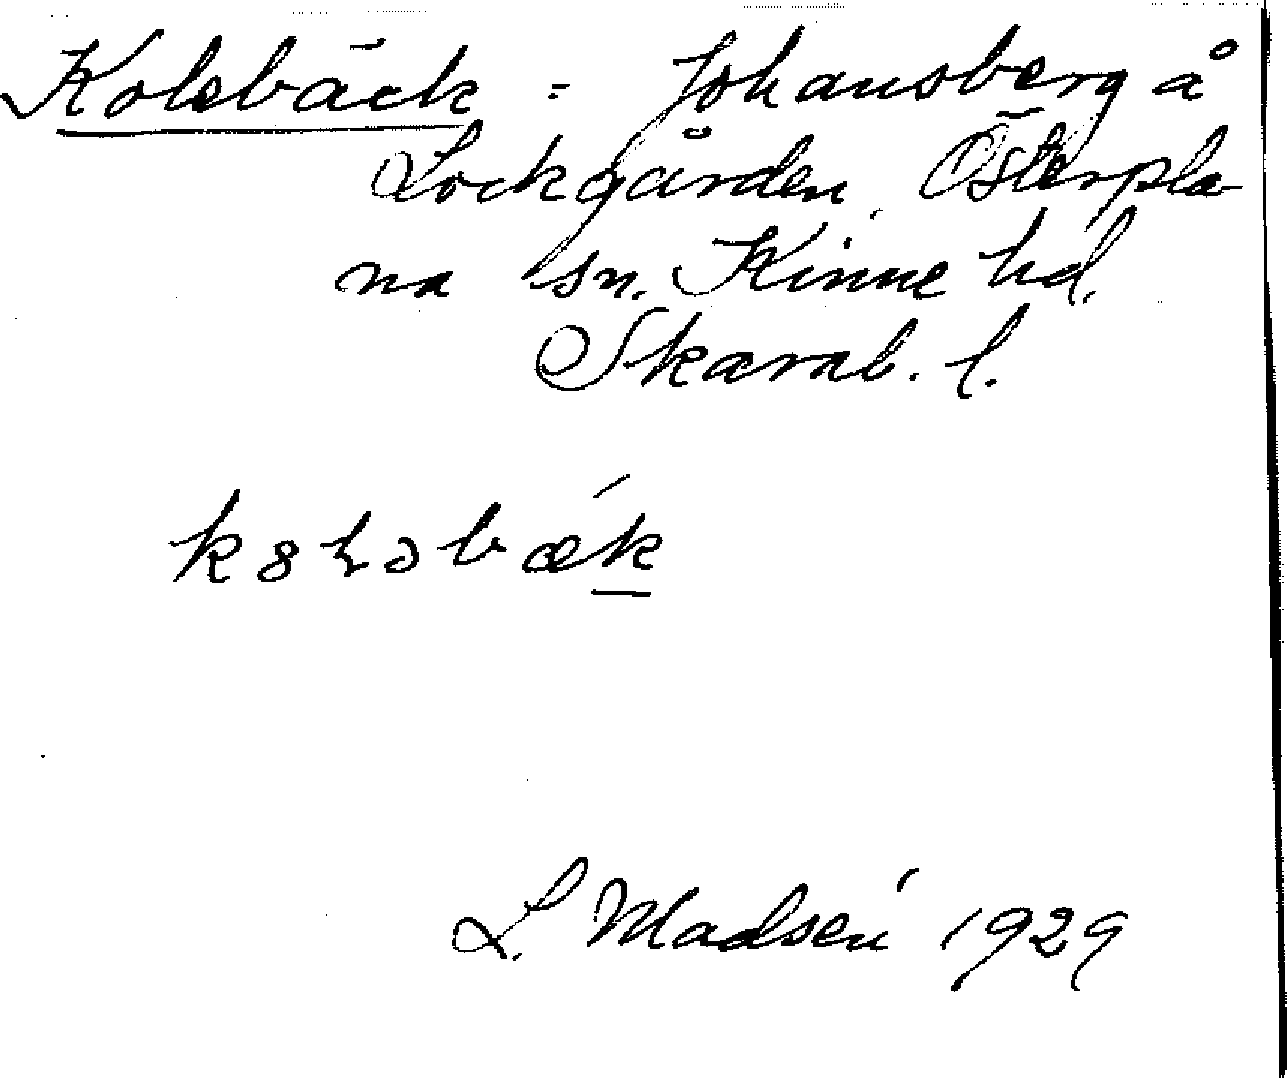 Kolebäck = Johansberg å
Lockgården, Österpla-
na sn. Kinne hd.
Skarab. l.
k8ɫəbǽk
L. Madsén 1929